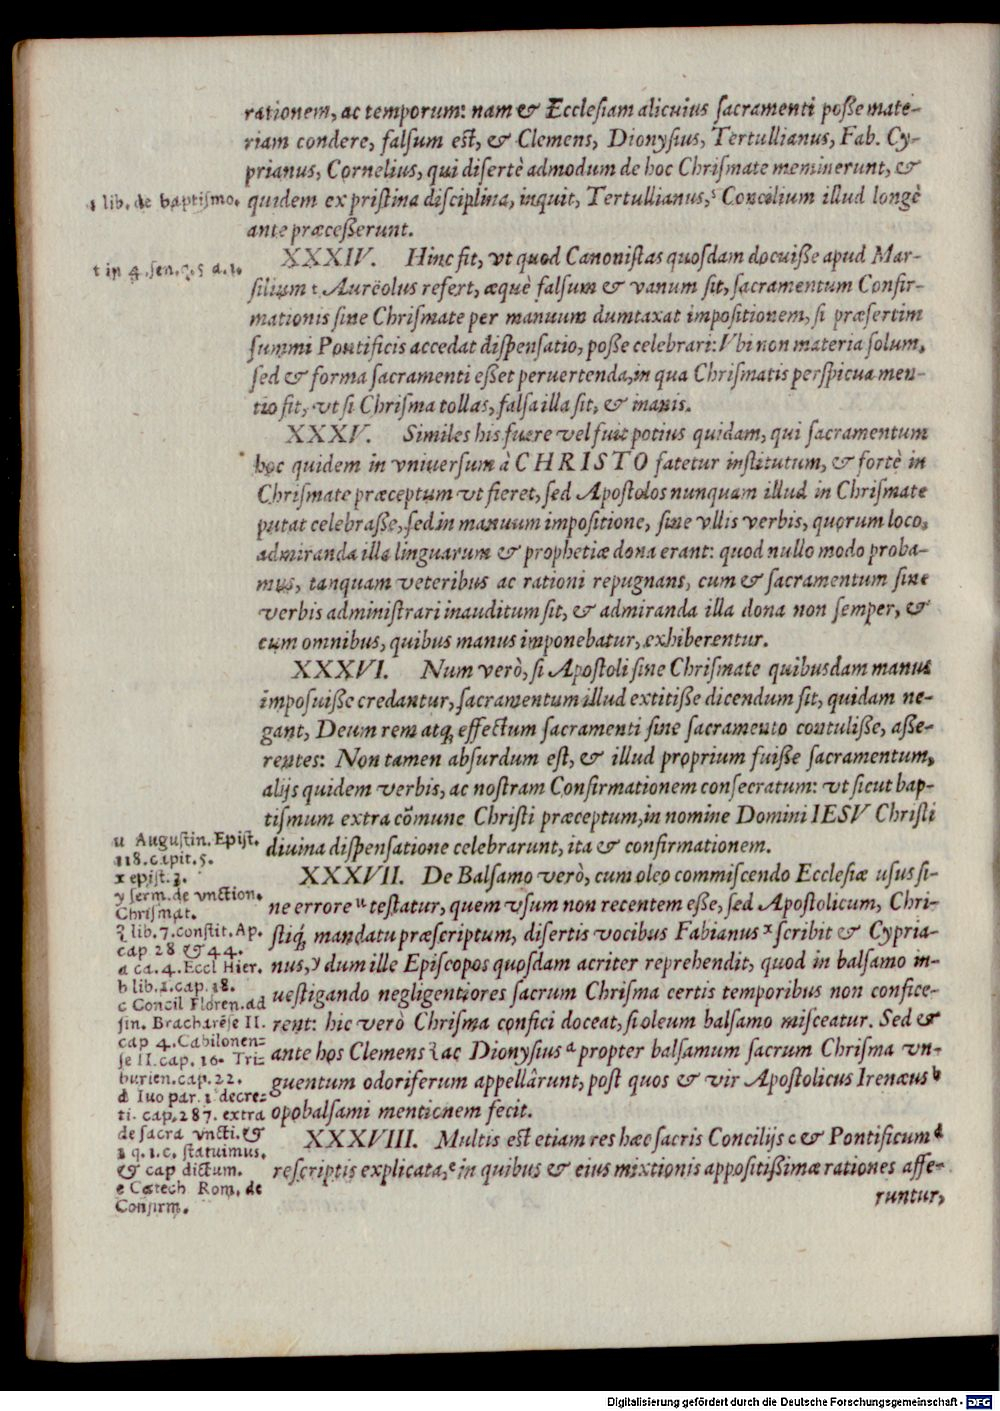 rationem, ac temporum: nam & Ecclesiam alicuius sacramenti poſſe mate-
riam condere, falſum eſt, & Clemens, Dionyſius, Tertullianus, Fab. Cy-
prianus, Cornelius, qui diſertè admodum de hoc Chriſmate meminerunt, &
quidem ex priſtina diſciplina, inquit, Tertullianus,ˢ Concilium illud longè
ante præceſſerunt.
s lib. de baptiſmo.
XXXIV. Hinc fit, vt quod Canoniſtas quoſdam docuiſſe apud Mar-
ſilium t Aureolus refert, æquè falſum & vanum ſit, ſacramentum Confir-
mationis ſine Chriſmate per manuum dumtaxat impoſitionem, ſi præſertim
ſummi Pontificis accedat diſpenſatio, poſſe celebrari: Vbi non materia ſolum,
ſed & forma ſacramenti eſſet peruertenda, in qua Chriſmatis perſpicua men-
tio fit, vt ſi Chriſma tollas, falſa illa ſit, & inanis.
t in 4. ſen. q. 5 a. 1.
XXXV. Similes his fuere vel fuit potius quidam, qui ſacramentum
hoc quidem in vniuerſum à CHRISTO fatetur inſtitutum, & fortè in
Chriſmate præceptum vt fieret, ſed Apoſtolos nunquam illud in Chriſmate
putat celebraſſe, ſed in manuum impoſitione, ſine vllis verbis, quorum loco,
admiranda illa linguarum & prophetiæ dona erant: quod nullo modo proba-
mus, tanquam veteribus ac rationi repugnans, cum & ſacramentum ſine
verbis adminiſtrari inauditum ſit, & admiranda illa dona non ſemper, &
cum omnibus, quibus manus imponebatur, exhiberentur.
XXXVI. Num verò, ſi Apoſtoli ſine Chriſmate quibusdam manus
impoſuiſſe credantur, ſacramentum illud extitiſſe dicendum ſit, quidam ne-
gant, Deum rem atq; effectum ſacramenti ſine ſacramento contuliſſe, aſſe-
rentes: Non tamen abſurdum eſt, & illud proprium fuiſſe ſacramentum,
alijs quidem verbis, ac noſtram Confirmationem conſecratum: vt ſicut bap-
tiſmum extra cõmune Chriſti præceptum, in nomine Domini IESV Chriſti
diuina diſpenſatione celebrarunt, ita & confirmationem.
XXXVII. De Balſamo verò, cum oleo commiſcendo Eccleſiæ uſus ſi-
ne errore ᵘ teſtatur, quem vſum non recentem eſſe, ſed Apoſtolicum, Chri-
ſtiq; mandatu præſcriptum, diſertis vocibus Fabianus ˣ ſcribit & Cypria-
nus,ʸ dum ille Epiſcopos quoſdam acriter reprehendit, quod in balſamo in-
ueſtigando negligentiores ſacrum Chriſma certis temporibus non confice-
rent: hic verò Chriſma confici doceat, ſi oleum balſamo miſceatur. Sed &
ante hos Clemens ᶻ ac Dionyſius ᵃ propter balſamum ſacrum Chriſma vn-
guentum odoriferum appellârunt, poſt quos & vir Apoſtolicus Irenæus ᵇ
opobalſami mentionem fecit.
XXXVIII. Multis eſt etiam res hæc ſacris Concilijs c & Pontificum ᵈ
reſcriptis explicata,ᵉ in quibus & eius mixtionis appoſitiſſimæ rationes affe-
runtur,
u Auguſtin. Epiſt.
118. capit. 5.
x epiſt. 3.
y ſerm. de vnction.
Chriſmat.
z lib. 7. conſtit. Ap.
cap 28 & 44.
a ca. 4. Eccl Hier.
b lib. 1. cap. 18.
c Concil Floren. ad
fin. Bracharẽſe II.
cap 4. Cabilonen-
ſe II. cap. 16. Tri-
burien. cap. 22.
d Iuo par. 1 decre-
ti. cap. 287. extra
de ſacra vncti. &
1 q. 1. c. ſtatuimus.
& cap dictum.
e Catech Rom. de
Confirm.
Digitalisierung gefördert durch die Deutsche Forschungsgemeinschaft - DFG